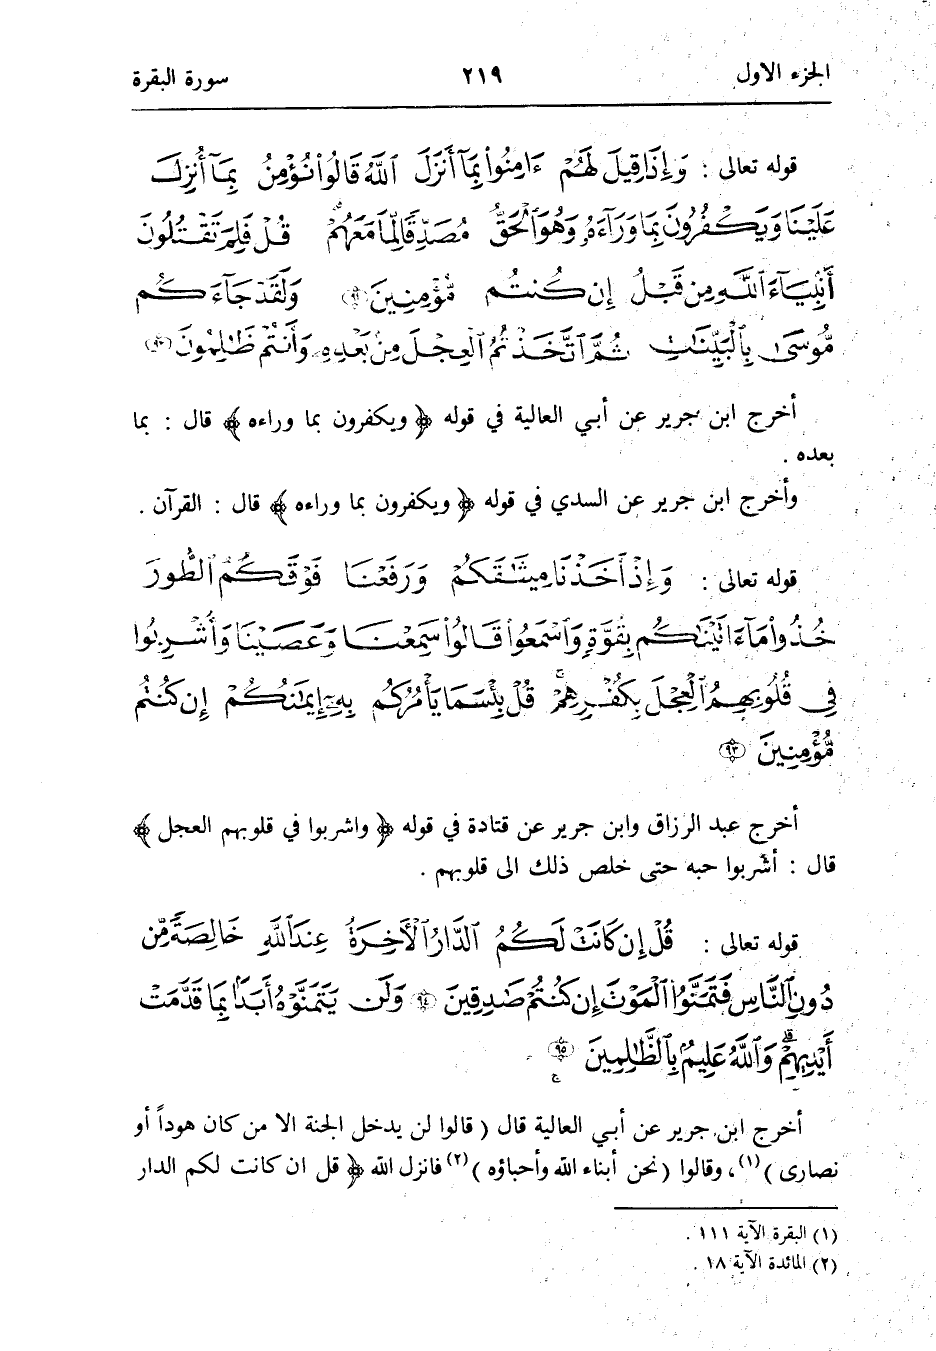 الجزء الاول ٢١٩ سورة البقرة
قوله تعالى : وَإِذَا قِيلَ لَهُمْ ءَامِنُوا۟ بِمَآ أَنزَلَ ٱللَّهُ قَالُوا۟ نُؤْمِنُ بِمَآ أُنزِلَ
عَلَيْنَا وَيَكْفُرُونَ بِمَا وَرَآءَهُۥ وَهُوَ ٱلْحَقُّ مُصَدِّقًا لِّمَا مَعَهُمْ ۗ قُلْ فَلِمَ تَقْتُلُونَ
أَنۢبِيَآءَ ٱللَّهِ مِن قَبْلُ إِن كُنتُم مُّؤْمِنِينَ ﴿٩١﴾ وَلَقَدْ جَآءَكُم
مُّوسَىٰ بِٱلْبَيِّنَٰتِ ثُمَّ ٱتَّخَذْتُمُ ٱلْعِجْلَ مِنۢ بَعْدِهِۦ وَأَنتُمْ ظَٰلِمُونَ ﴿٩٢﴾
أخرج ابن جرير عن أبي العالية في قوله ﴿ ويكفرون بما وراءه ﴾ قال : بما
بعده .
وأخرج ابن جرير عن السدي في قوله ﴿ ويكفرون بما وراءه ﴾ قال : القرآن .
قوله تعالى : وَإِذْ أَخَذْنَا مِيثَٰقَكُمْ وَرَفَعْنَا فَوْقَكُمُ ٱلطُّورَ
خُذُوا۟ مَآ ءَاتَيْنَٰكُم بِقُوَّةٍ وَٱسْمَعُوا۟ قَالُوا۟ سَمِعْنَا وَعَصَيْنَا وَأُشْرِبُوا۟
فِى قُلُوبِهِمُ ٱلْعِجْلَ بِكُفْرِهِمْ ۚ قُلْ بِئْسَمَا يَأْمُرُكُم بِهِۦٓ إِيمَٰنُكُمْ إِن كُنتُم
مُّؤْمِنِينَ ﴿٩٣﴾
أخرج عبد الرزاق وابن جرير عن قتادة في قوله ﴿ واشربوا في قلوبهم العجل ﴾
قال : أشربوا حبه حتى خلص ذلك الى قلوبهم .
قوله تعالى : قُلْ إِن كَانَتْ لَكُمُ ٱلدَّارُ ٱلْأَخِرَةُ عِندَ ٱللَّهِ خَالِصَةً مِّن
دُونِ ٱلنَّاسِ فَتَمَنَّوُا۟ ٱلْمَوْتَ إِن كُنتُمْ صَٰدِقِينَ ﴿٩٤﴾ وَلَن يَتَمَنَّوْهُ أَبَدًۢا بِمَا قَدَّمَتْ
أَيْدِيهِمْ ۗ وَٱللَّهُ عَلِيمٌۢ بِٱلظَّٰلِمِينَ ﴿٩٥﴾
أخرج ابن جرير عن أبي العالية قال ( قالوا لن يدخل الجنة الا من كان هوداً أو
نصارى )(١)، وقالوا ( نحن أبناء الله وأحباؤه )(٢) فانزل الله ﴿ قل ان كانت لكم الدار
(١) البقرة الآية ١١١ .
(٢) المائدة الآية ١٨ .